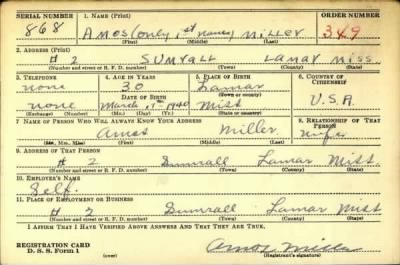 SERIAL NUMBER 1. NAME (Print) ORDER NUMBER
868 Amos (only 1st name) Miller 349
(First) (Middle) (Last)
2. ADDRESS (Print)
# 2 Sumrall Lamar Miss
(Number and street or R. F. D. number) (Town) (County) (State)
3. TELEPHONE 4. AGE IN YEARS 5. PLACE OF BIRTH 6. COUNTRY OF CITIZENSHIP
none 30 Lamar
DATE OF BIRTH (Town or county)
none March 1940 Miss U.S.A.
(Exchange) (Number) (Mo.) (Day) (Yr.) (State or country)
7. NAME OF PERSON WHO WILL ALWAYS KNOW YOUR ADDRESS 8. RELATIONSHIP OF THAT PERSON
Amos Miller wife
(Mr., Mrs., Miss) (First) (Middle) (Last)
9. ADDRESS OF THAT PERSON
# 2 Sumrall Lamar Miss
(Number and street or R. F. D. number) (Town) (County) (State)
10. EMPLOYER'S NAME
Self.
11. PLACE OF EMPLOYMENT OR BUSINESS
# 2 Sumrall Lamar Miss
(Number and street or R. F. D. number) (Town) (County) (State)
I AFFIRM THAT I HAVE VERIFIED ABOVE ANSWERS AND THAT THEY ARE TRUE.
REGISTRATION CARD
D. S. S. Form 1 (over) Amos Miller
(Registrant's signature)